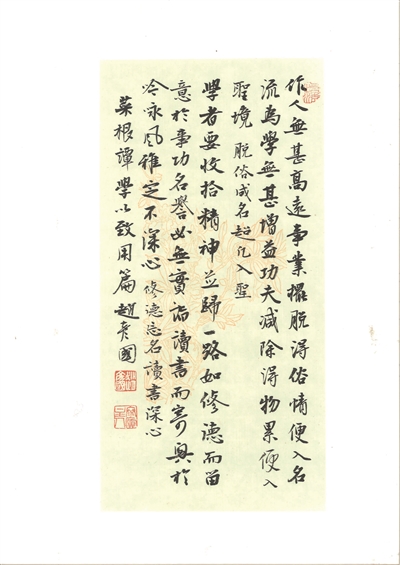 作人無甚高遠事業擺脫得俗情便入名
流為學無甚增益功夫減除得物累便入
聖境 脫俗成名超凡入聖
學者要收拾精神並歸一路如修德而留
意於事功名譽必無實詣讀書而寄興於
吟咏風雅定不深心 修德忘名讀書深心
菜根譚學以致用篇 趙彥國